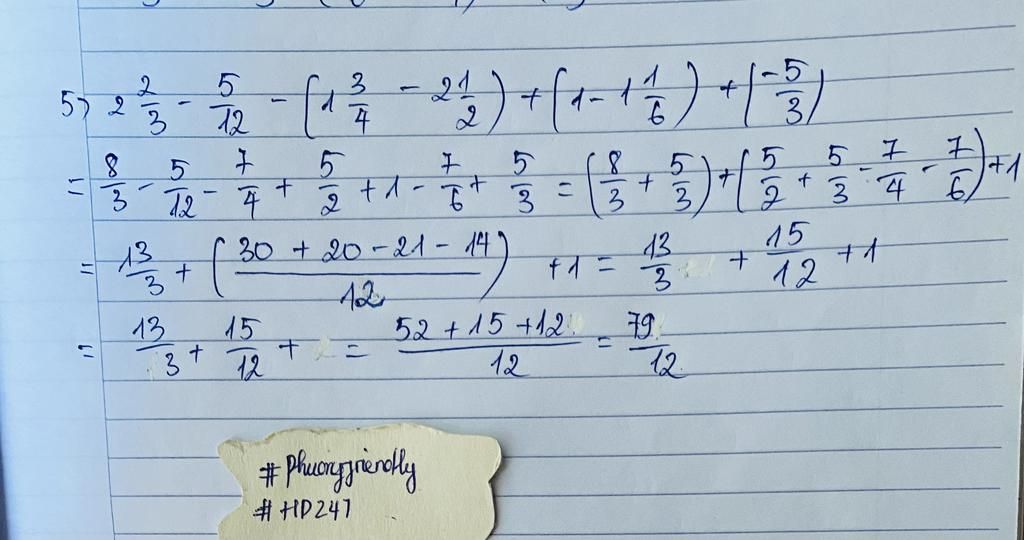 5) 2 2/3 - 5/12 - (1 3/4 - 2 1/2) + (1 - 1 1/6) + (-5/3)
= 8/3 - 5/12 - 7/4 + 5/2 + 1 - 7/6 + 5/3 = (8/3 + 5/3) + (5/2 + 5/3 - 7/4 - 7/6) + 1
= 13/3 + ((30 + 20 - 21 - 14)/12) + 1 = 13/3 + 15/12 + 1
= 13/3 + 15/12 + = (52 + 15 + 12)/12 = 79/12
#Phuongfriendly
#HD247